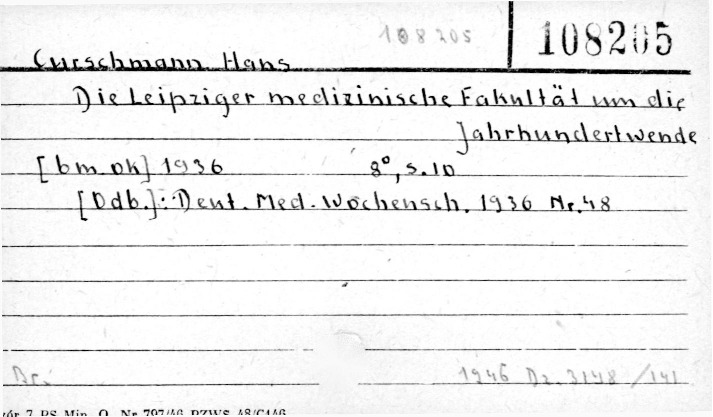 108205 108205
Curschmann Hans
Die Leipziger medizinische Fakultät um die
Jahrhundertwende
[bm. ok] 1936 8°, s. 10
[Odb.]: Deut. Med. Wochensch. 1936 Nr. 48
Br. 1946 Dz. 3148/141
zór 7. PS Min. O. Nr 797/46 PZWS 48/C146